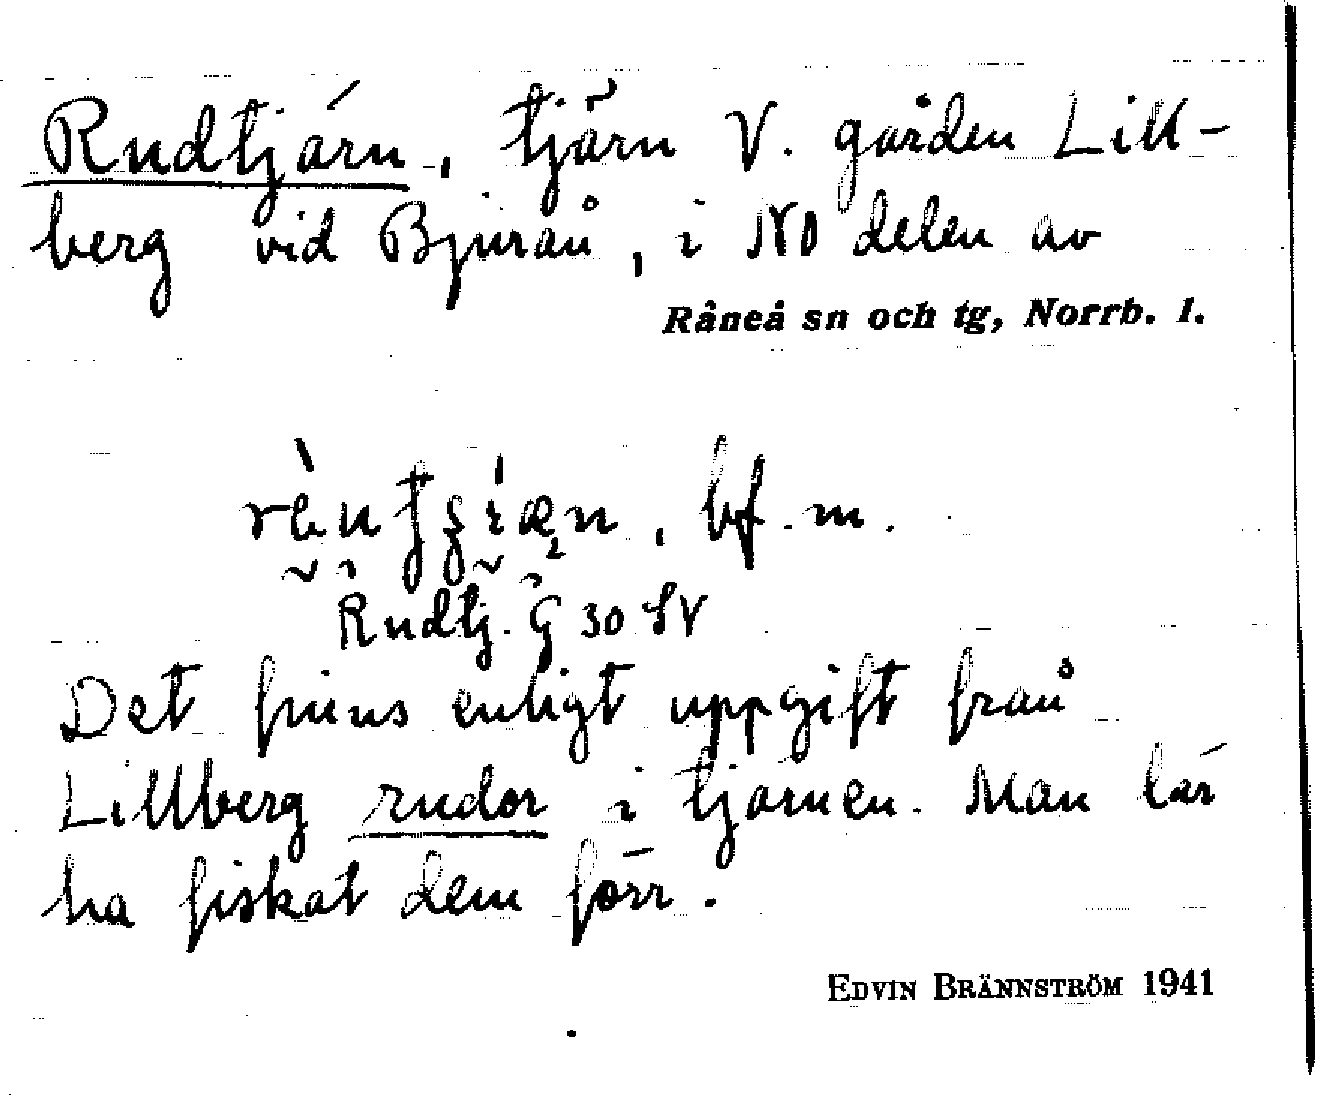 Rudtjärn, tjärn V. gården Lill-
berg vid Bjurån, i NO delen av
Råneå sn och tg, Norrb. l.
, bf. m.
Rudtj. G 30 SV
Det finns enligt uppgift från
Lillberg rudor i tjärnen. Man lär
ha fiskat dem förr.
EDVIN BRÄNNSTRÖM 1941